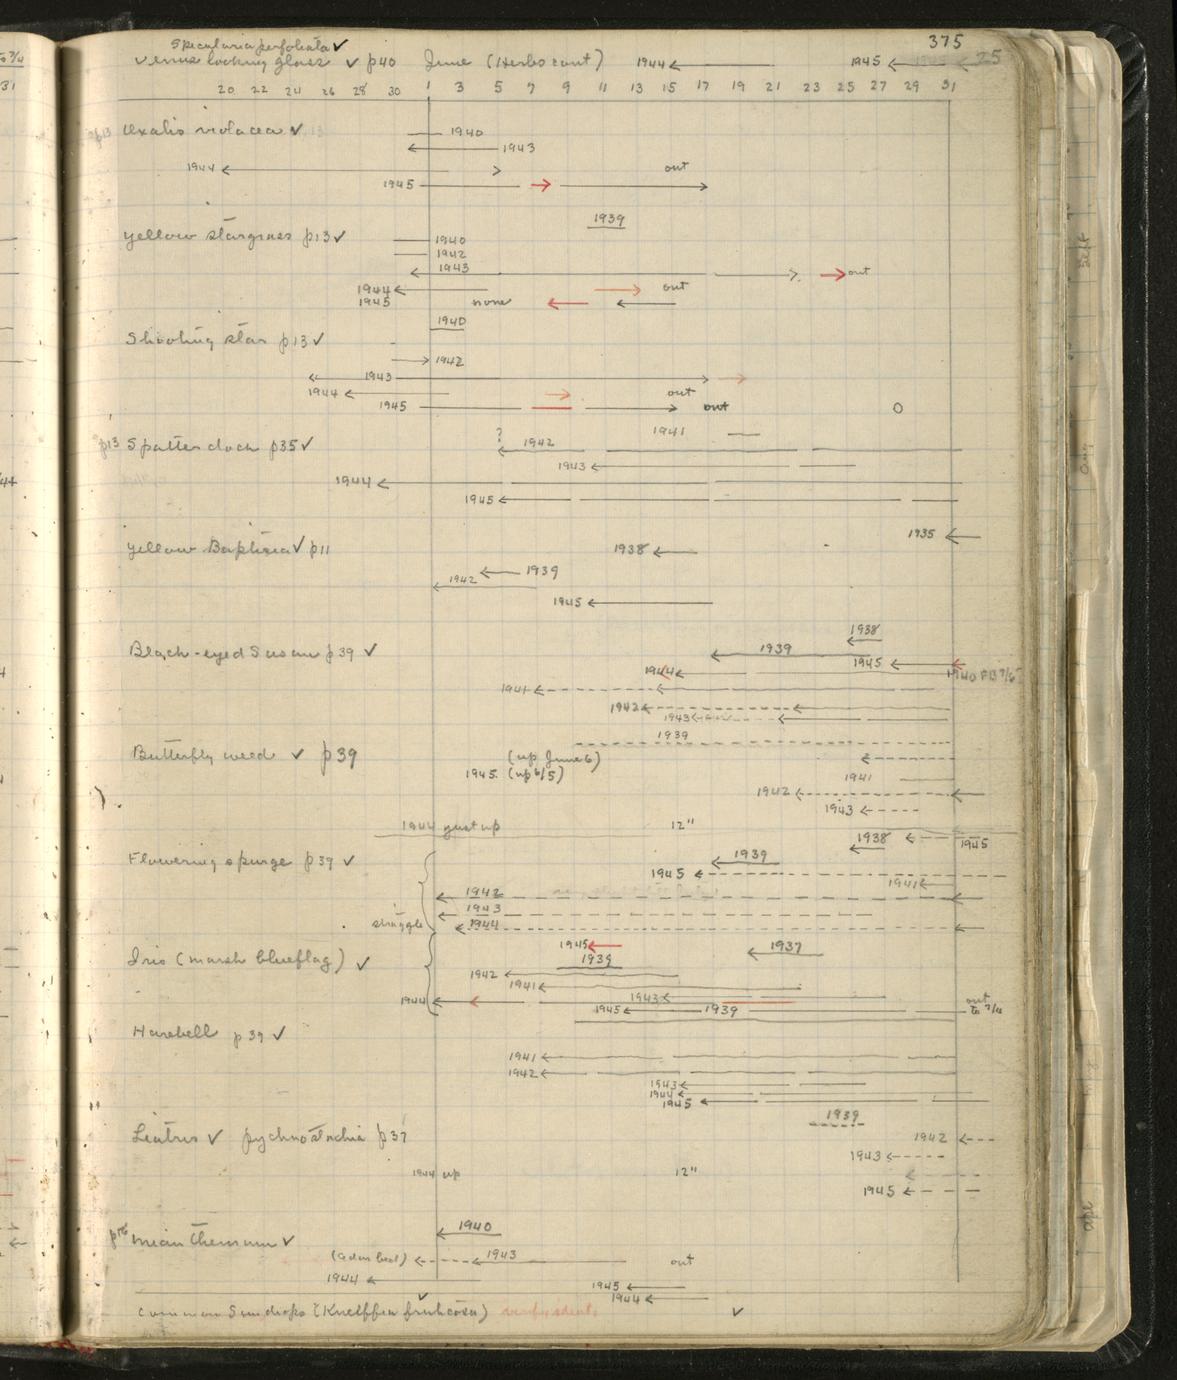 375
Specularia perfoliata ✓
Venus looking glass ✓ p40 June (Herbs cont) 1944 1945 25
20 22 24 26 28 30 1 3 5 7 9 11 13 15 17 19 21 23 25 27 29 31
p13 Oxalis violacea ✓ 1940
1943
1944 out
1945
1939
Yellow stargrass p13 ✓ 1940
1942
1943 out
1944 out
1945 none
1940
Shooting star p13 ✓
1942
1943
1944 out
1945 out
? 1941
p13 Spatter dock p35 ✓ 1942
1943
1944
1945
1935
Yellow Baptisia ✓ p11 1938
1939
1942
1945
1938
Black-eyed Susan p39 ✓ 1939
1945
1944 1940 FB 7/6
1941
1942
1943
1939
Butterfly weed ✓ p39 (up June 6)
1945 (up 6/5) 1941
1942
1943
1944 just up 12"
1938 1945
Flowering spurge p39 ✓ 1939
1945
1941
1942
1943
struggle 1944
1945 1937
Iris (marsh blueflag) ✓ 1939
1942
1941
1944 1943 out
1945 1939 to 7/4
Harebell p39 ✓
1941
1942
1943
1944
1945
1939
Liatris ✓ pychnostachia p37 1942
1943
1944 up 12"
1945
p16 Mianthemum ✓ 1940
1943 out
1944 1945
1944
Common Sundrops (Kneiffia fruticosa) verify ident. ✓
Sept
Aug
Apr